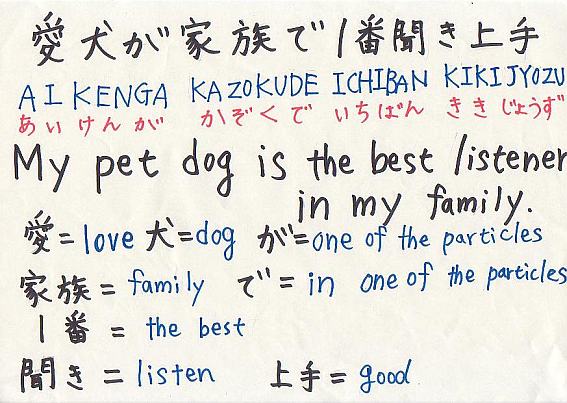 愛犬が家族で1番聞き上手
AIKENGA KAZOKUDE ICHIBAN KIKIJYOZU
あいけんが かぞくで いちばん ききじょうず
My pet dog is the best listener
in my family.
愛=love 犬=dog が=one of the particles
家族=family で=in one of the particles
1番=the best
聞き=listen 上手=good